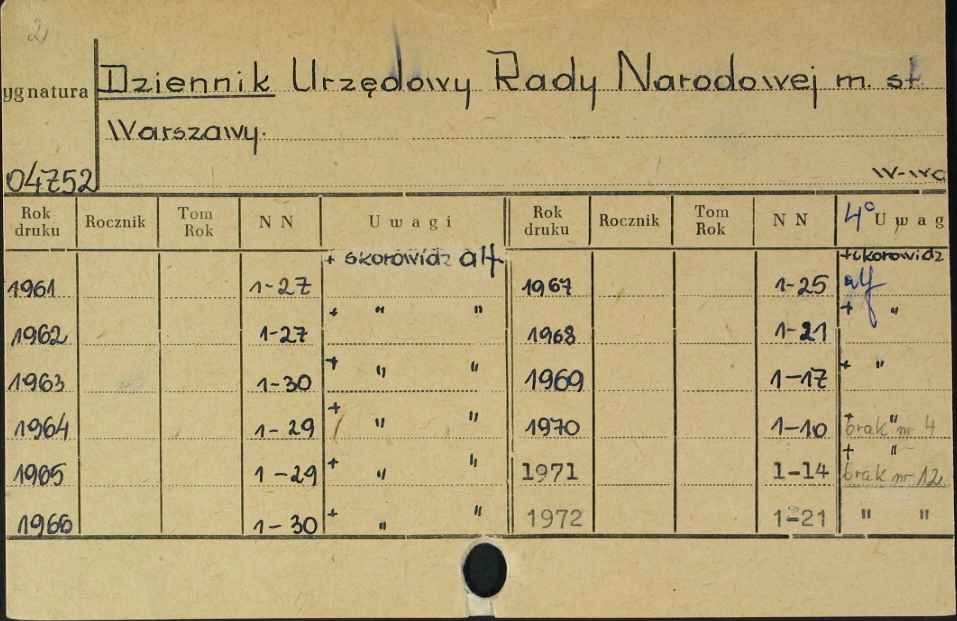 2
ygnatura Dziennik Urzędowy Rady Narodowej m. st.
Warszawy.
04752 W-wa
Rok druku Rocznik Tom Rok N N Uwagi Rok druku Rocznik Tom Rok N N 4° Uwag
1961 1-27 + skorowidz alf 1967 1-25 + skorowidz alf
1962 1-27 + " " 1968 1-21 + "
1963 1-30 + " " 1969 1-17 + "
1964 1-29 + " " 1970 1-10 + " brak nr 4
1965 1-29 + " " 1971 1-14 + " brak nr 12
1966 1-30 + " " 1972 1-21 " "